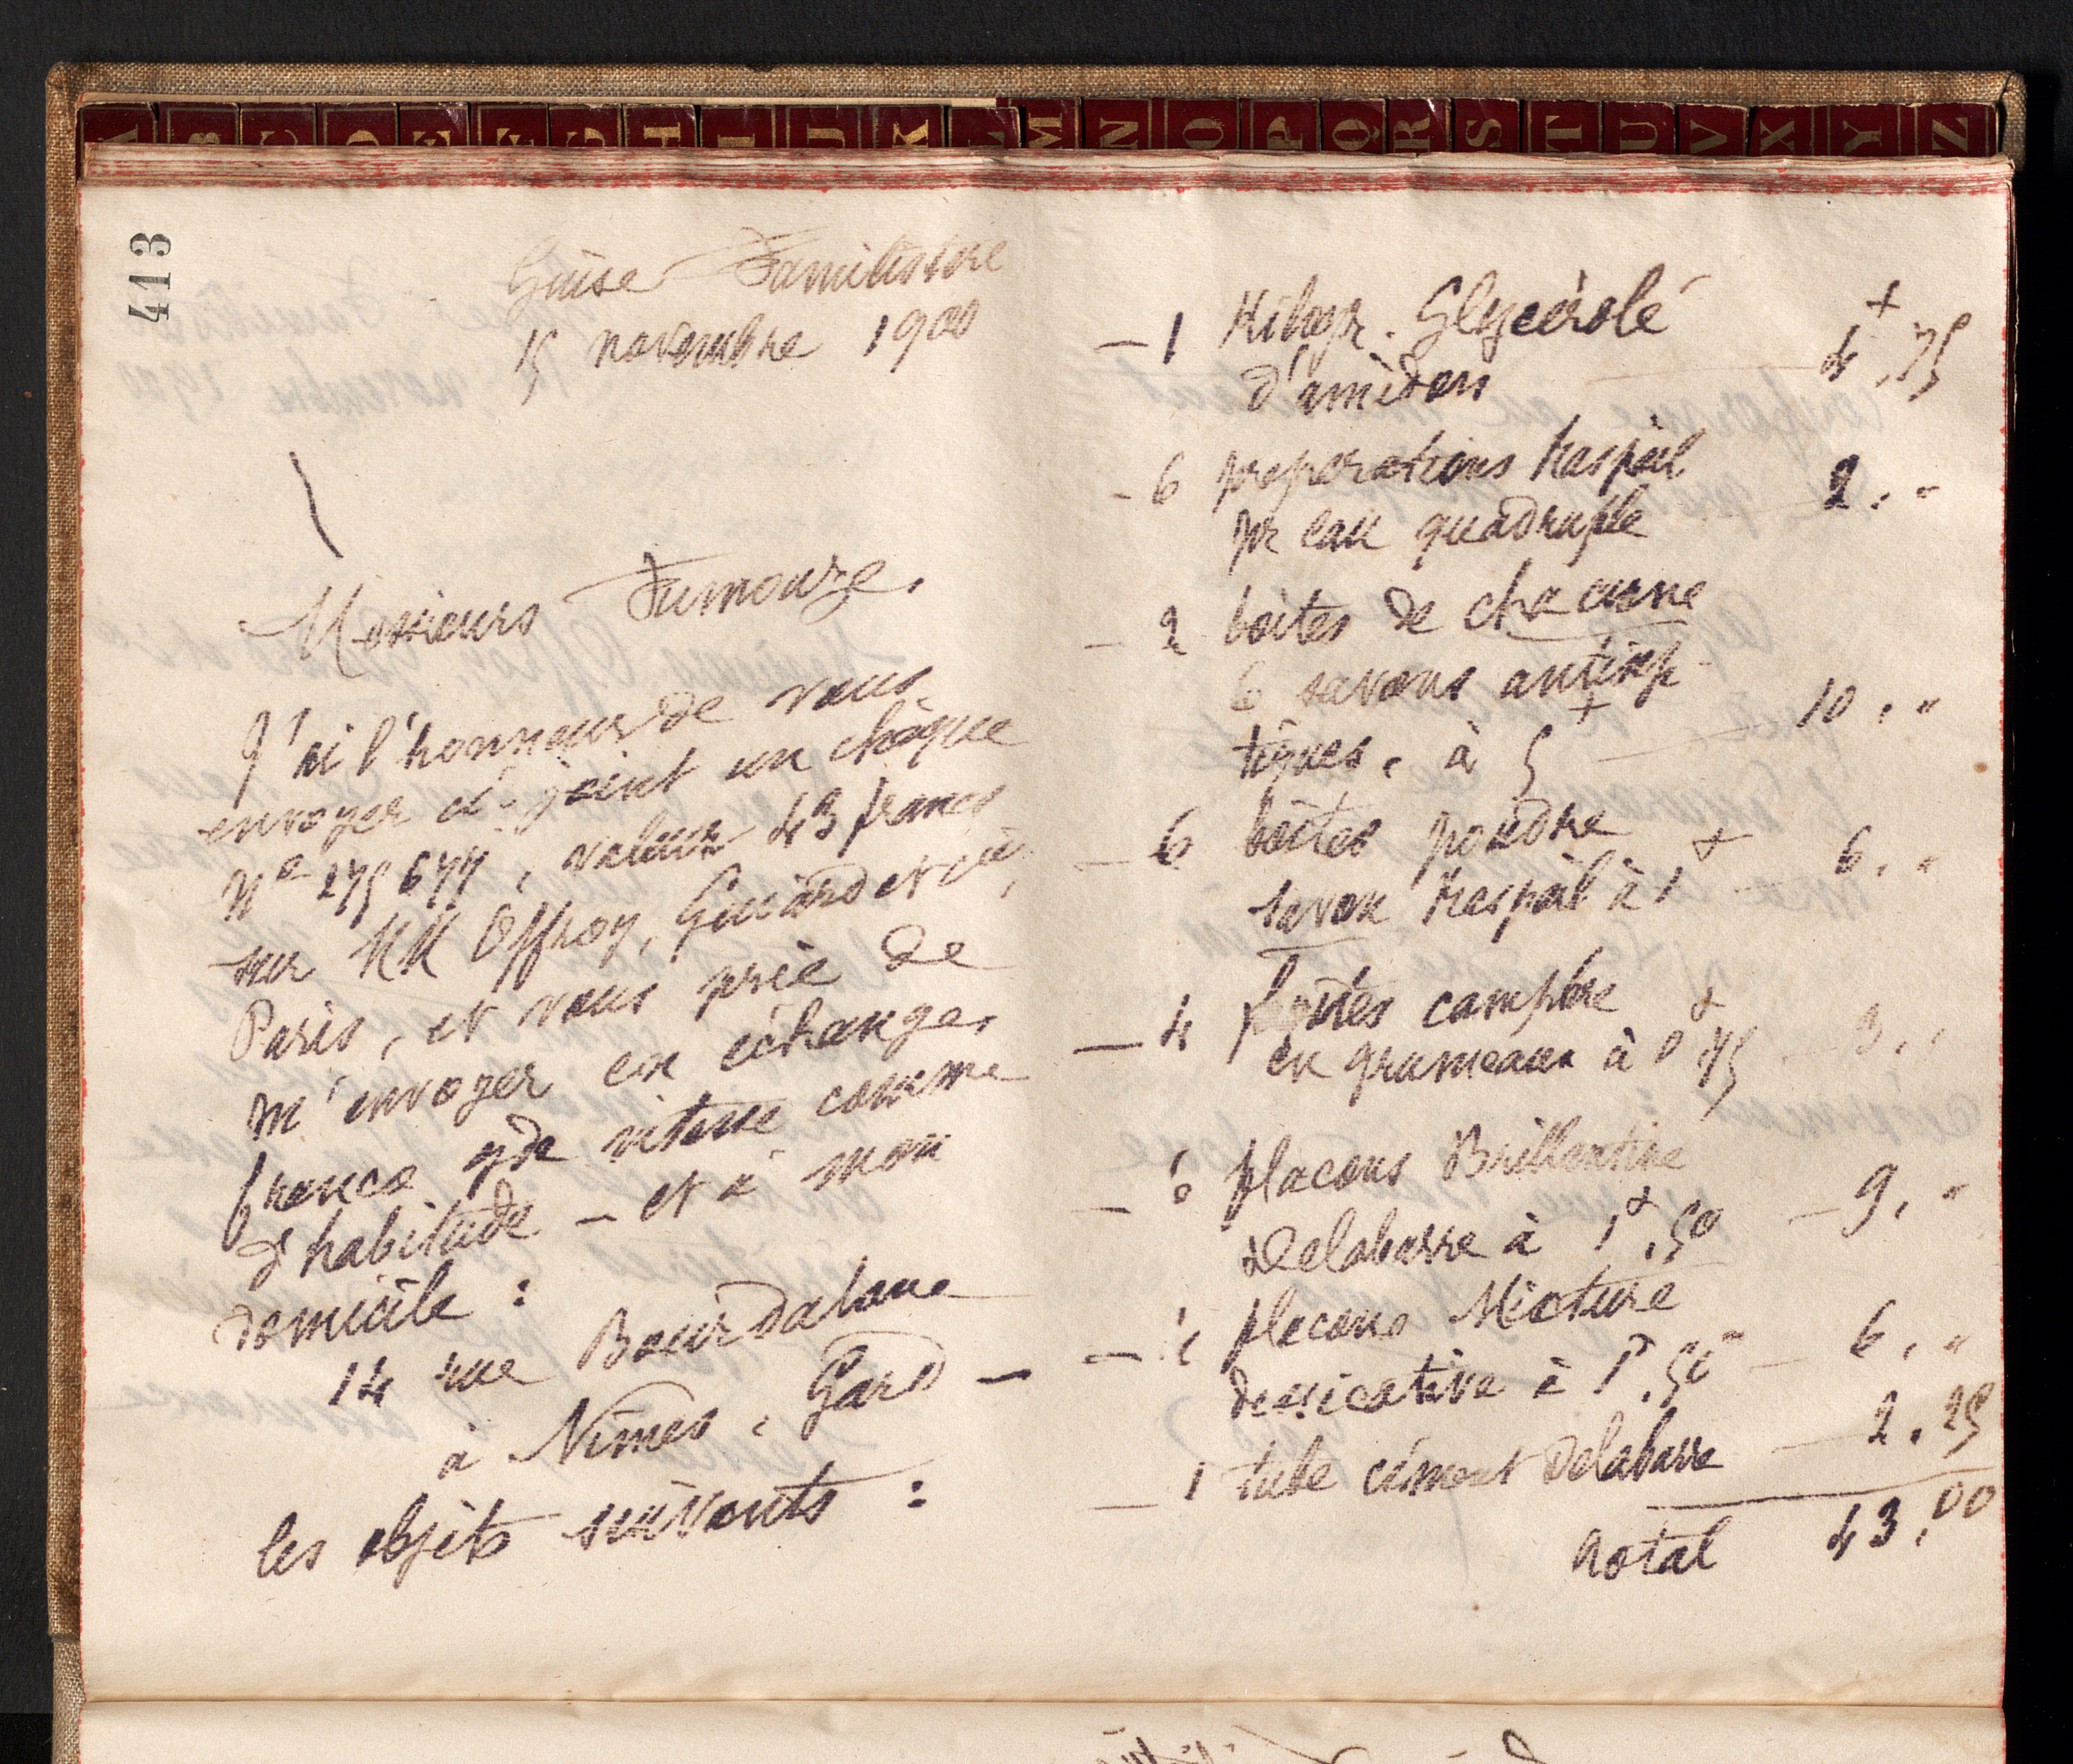 A B C D E F G H I J K L M N O P Q R S T U V X Y Z
413
Guise Familistère
15 novembre 1900
Messieurs Fumouze,
J'ai l'honneur de vous
envoyer ci-joint un chèque
Nº 275677, valeur 43 francs
sur MM Offroy, Guiard et Cie,
Paris, et vous prie de
m'envoyer en échange,
franco gde vitesse comme
d'habitude — et à mon
domicile :
14 rue Bourdaloue
à Nîmes, Gard —
les objets suivants :
— 1 Kilogr. Glycérolé
d'amidon 4f,75
- 6 préparations Raspail
pr eau quadruple 2, "
— 2 boîtes de chacune
6 savons antisep-
tiques, à 5f — 10, "
— 6 boîtes poudre
savon Raspail à 1f — 6, "
— 4 boîtes camphre
en grumeaux à 0f,75 — 3, "
— 6 flacons Brillantine
Delabarre à 1f,50 — 9, "
— flacons Mixture
dessicative à 1f,50 — 6, "
— 1 tube ciment Delabarre — 2,25
Total 43,00